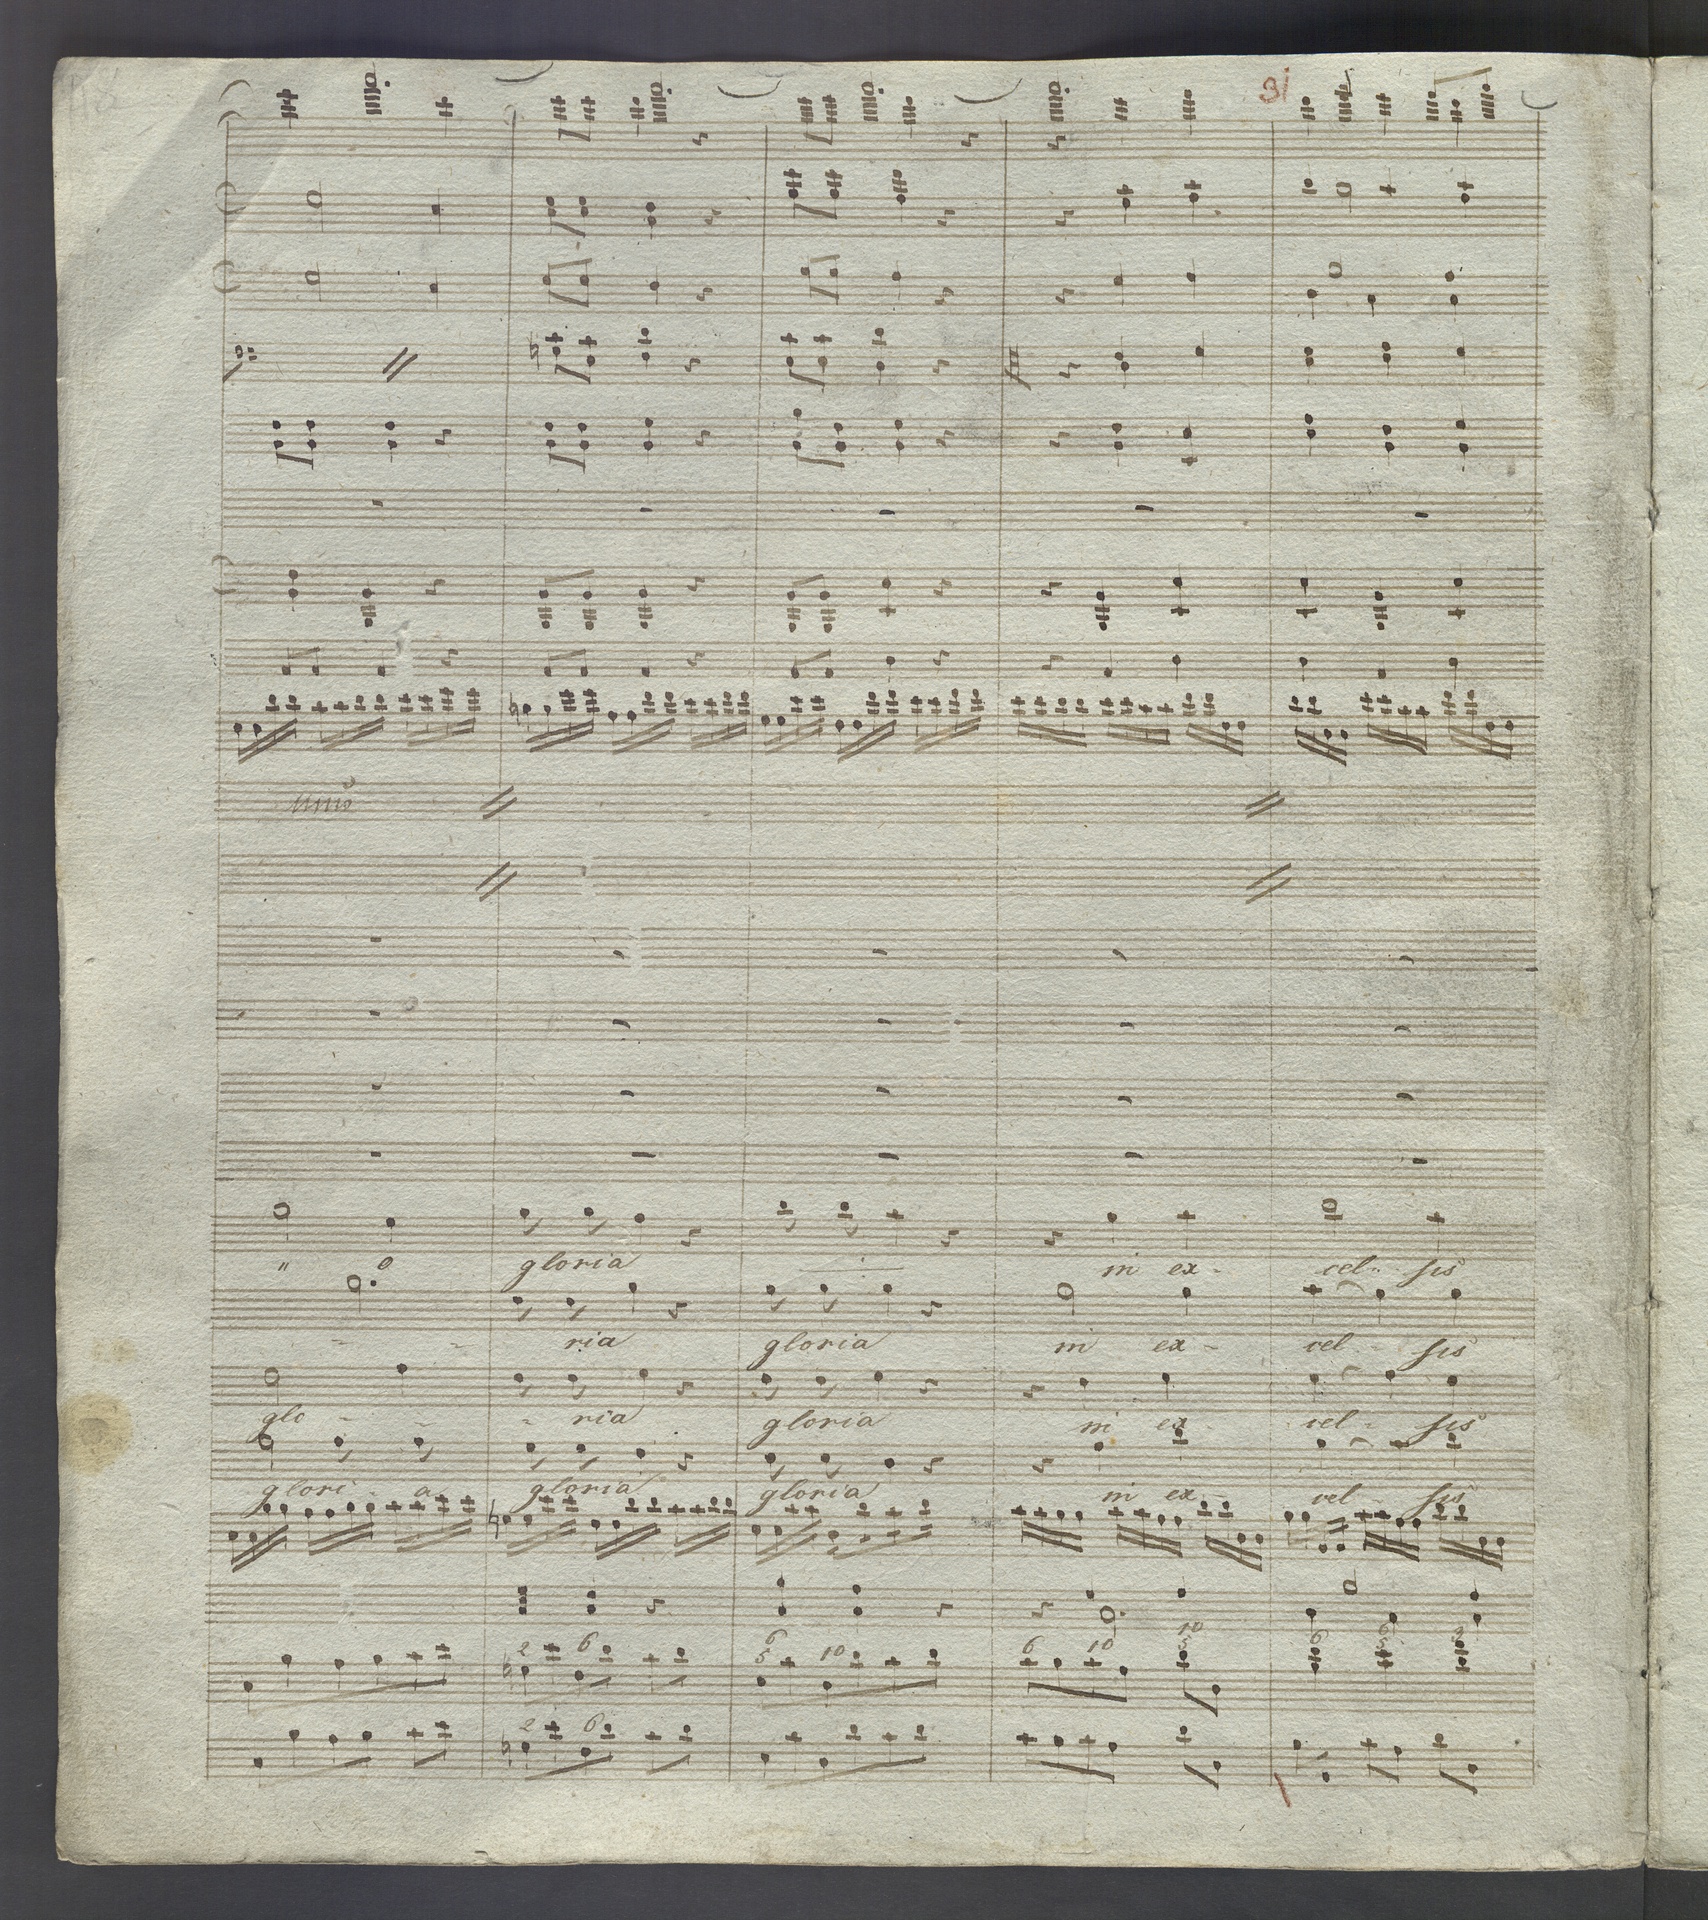 31
unis
" o gloria in ex - cel - sis
- - ria gloria in ex - cel - sis
glo - - - ria gloria in ex cel - sis
glori - a gloria gloria in ex - cel - sis
2 6 6 5 10 6 10 10 5 6 6 5
2 6